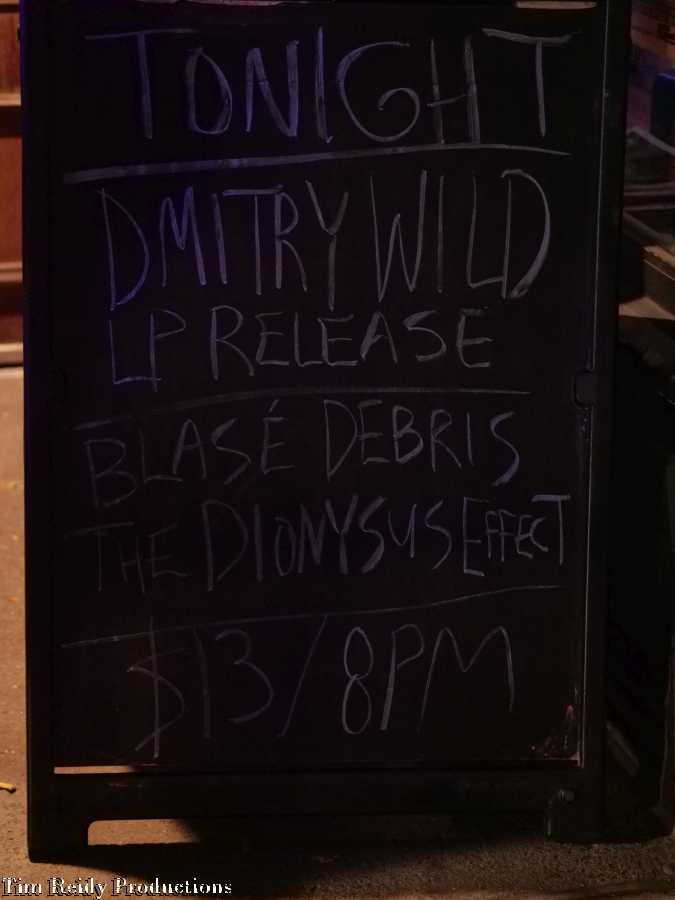 TONIGHT
DMITRY WILD
LP RELEASE
BLASÉ DEBRIS
THE DIONYSUS EFFECT
$13/8PM
Tim Reidy Productions